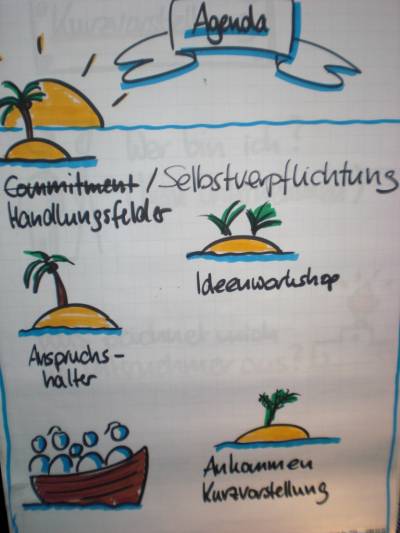 Agenda
Commitment / Selbstverpflichtung
Handlungsfelder
Ideenworkshop
Anspruchs-
halter
Ankommen
Kurzvorstellung